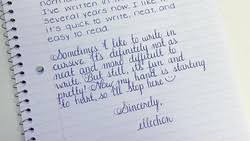 I've written in
several years now. I like
it's quick to write, neat, and
easy to read.
Sometimes I like to write in
cursive. It's definitely not as
neat and more difficult to
write. But still, it's fun and
pretty! Now my hand is starting
to hurt, so I'll stop here
Sincerely,